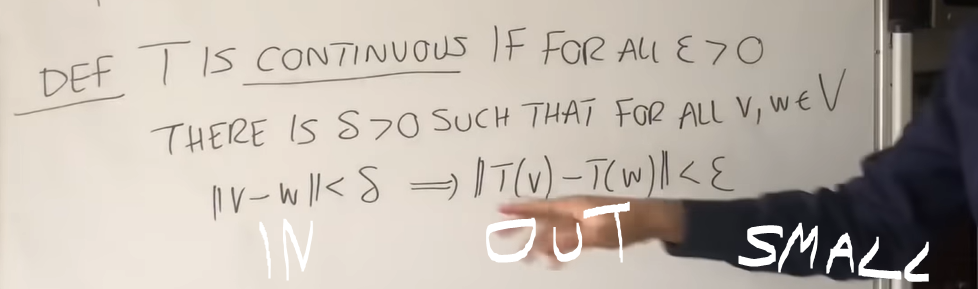 DEF T IS CONTINUOUS IF FOR ALL ε > 0
THERE IS δ > 0 SUCH THAT FOR ALL V, W ∈ V
||V - W|| < δ ⟹ ||T(V) - T(W)|| < ε
IN OUT SMALL